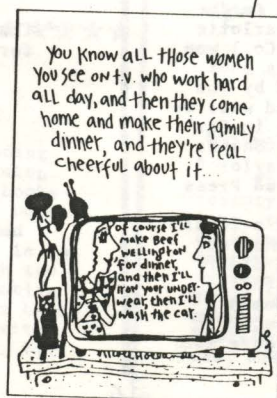 You know all those women
you see on t.v. who work hard
all day, and then they come
home and make their family
dinner, and they're real
cheerful about it...
Of course I'll
make Beef
Wellington
for dinner,
and then I'll
iron your under-
wear, then I'll
wash the car.